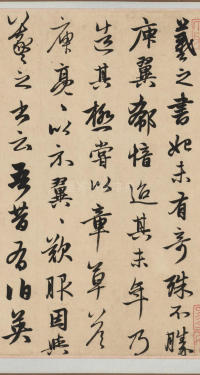 羲之書始未有奇殊不勝
庾翼郗愔迨其末年乃
造其極嘗以章草答
庾亮亮以示翼翼歎服因與
羲之書云吾昔有伯英